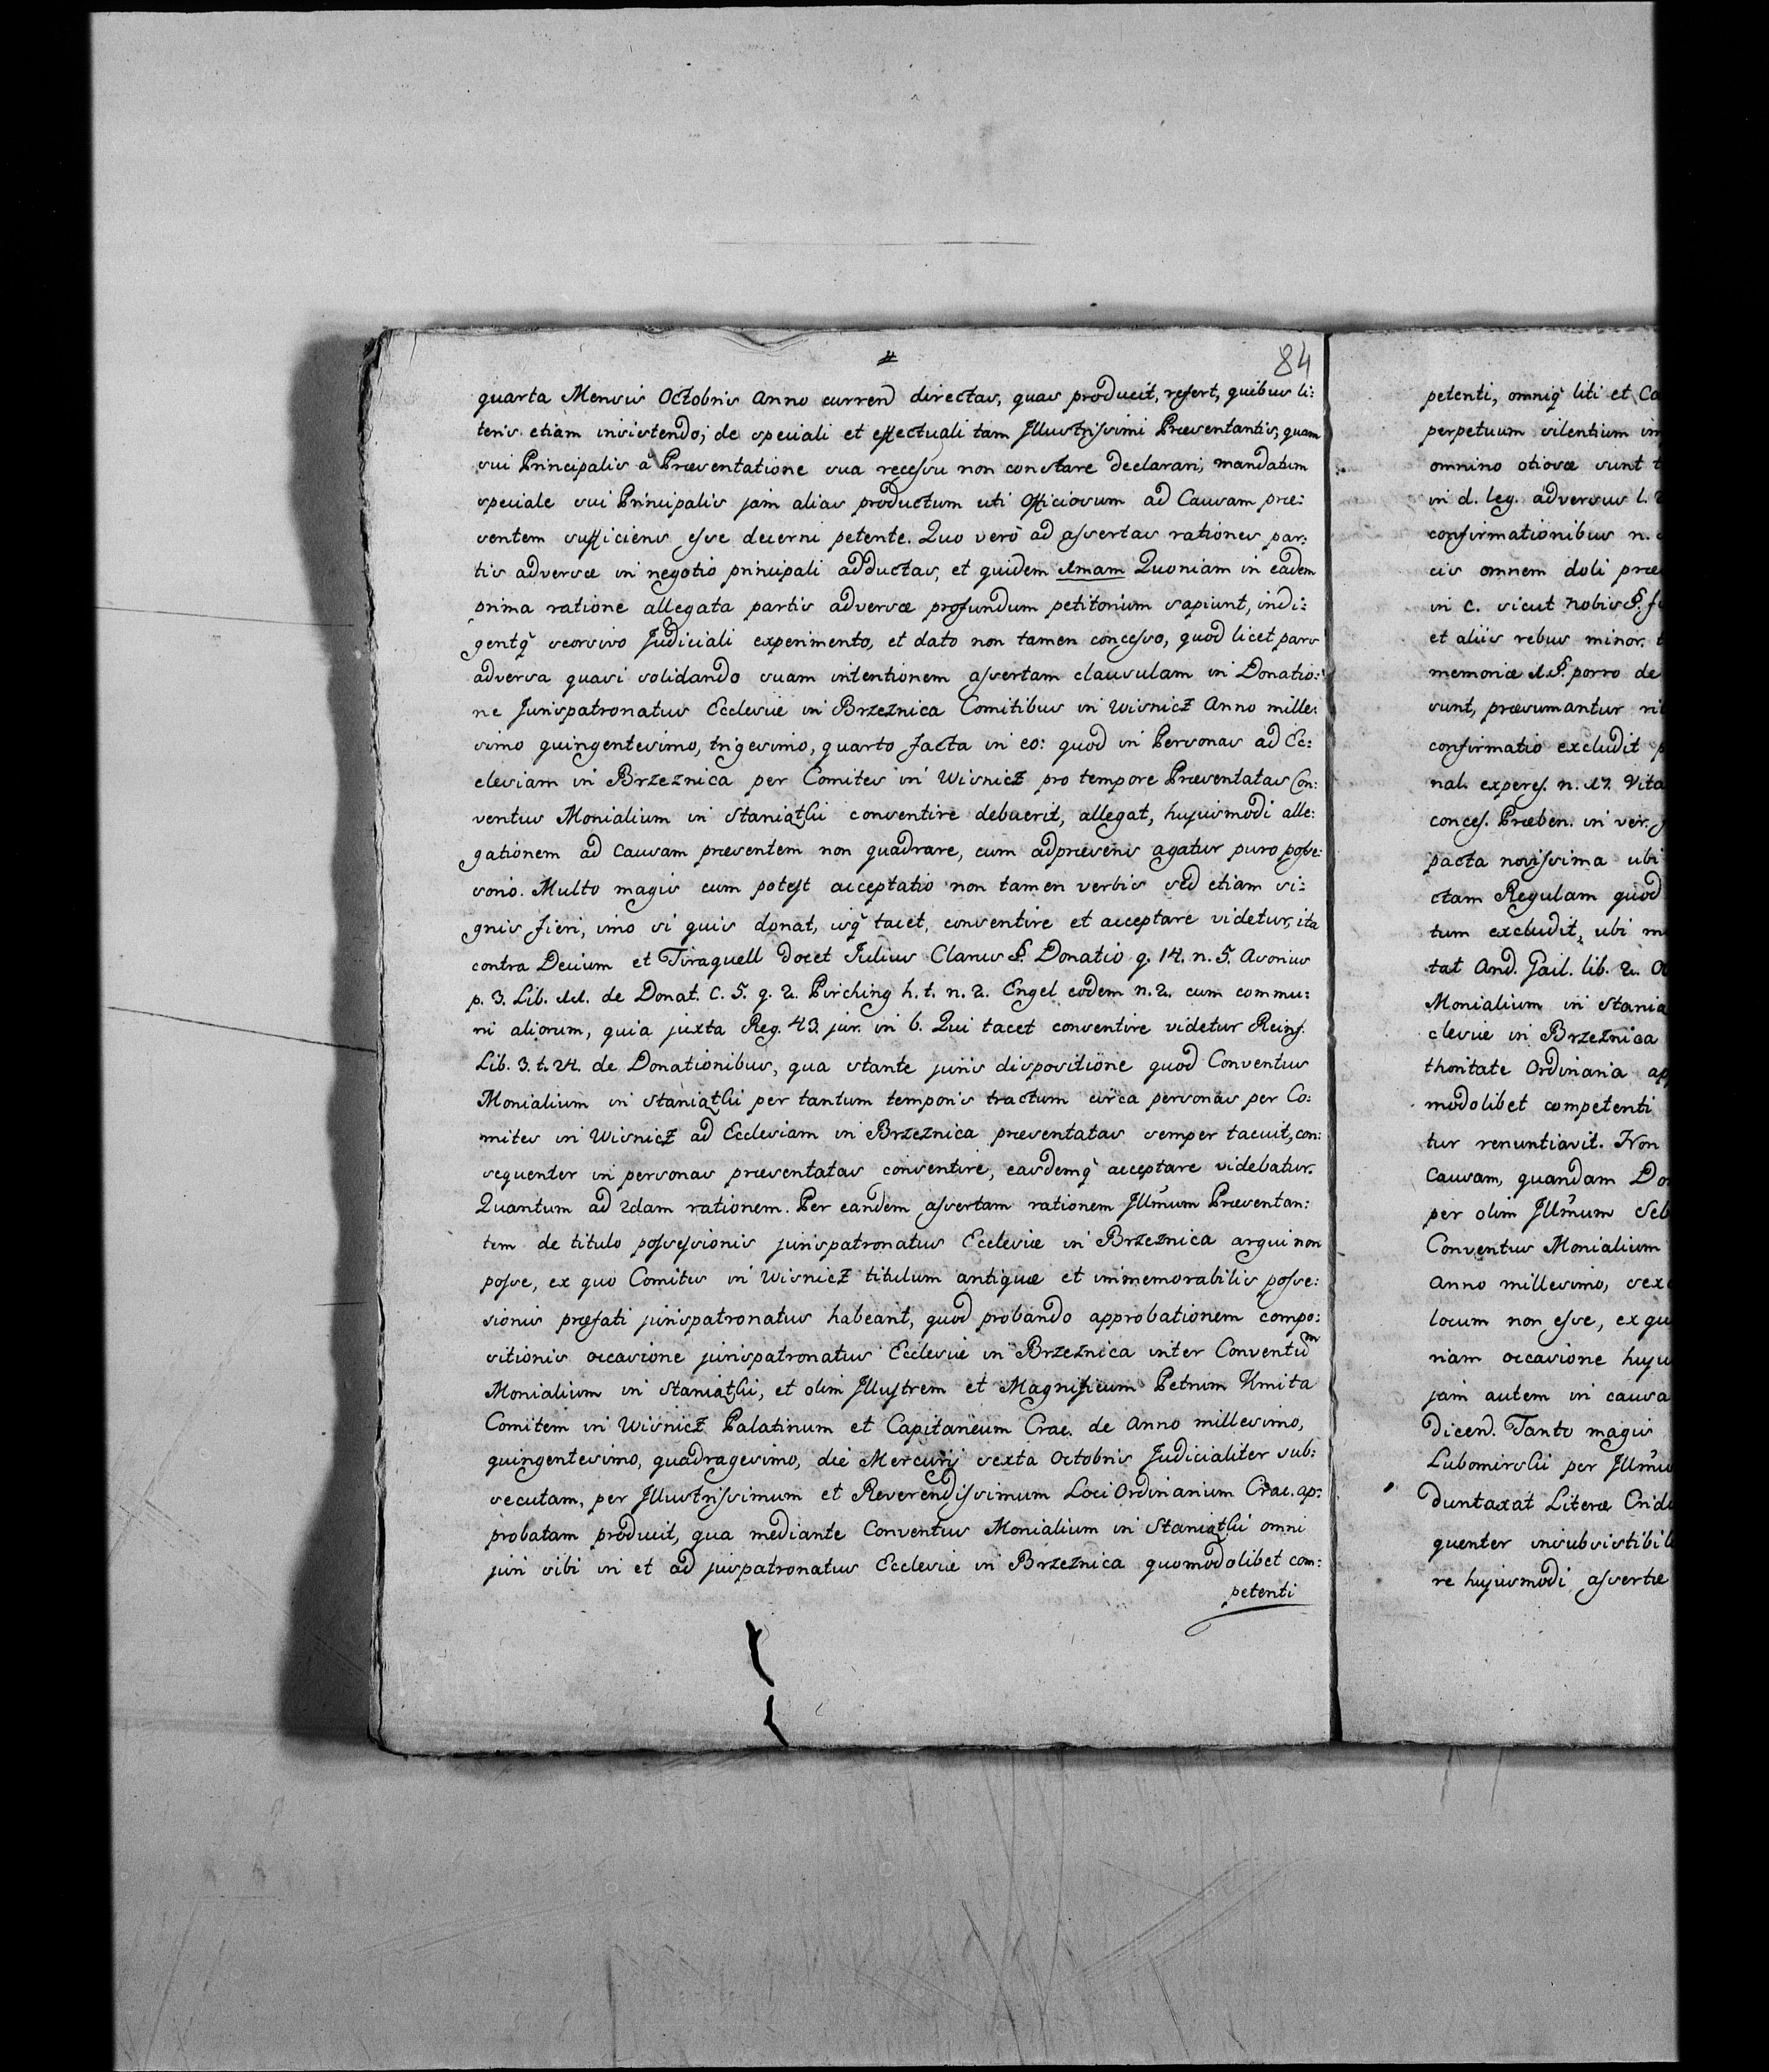 84
quarta Mensis Octobris Anno curren directas, quas producit, refert, quibus li:
teris etiam insistendo, de speciali et effectuali tam Illustrissimi Præsentantis, quam
sui Principalis à Præsentatione sua recessu non constare declarari, mandatum
speciale sui Principalis jam alias productum uti Officiosum ad Causam præ:
sentem sufficiens esse decerni petente. Quo verò ad assertas rationes par:
tis adversæ in negotio principali adductas, et quidem 1mam Quoniam in eadem
prima ratione allegata partis adversæ profundum petitorium sapiunt, indi:
gentq seorsivo Judiciali experimento, et dato non tamen concesso, quod licet pars
adversa quasi solidando suam intentionem assertam clausulam in Donatio:
ne Jurispatronatus Ecclesiæ in Brzeznica Comitibus in Wisnicz Anno mille:
simo quingentesimo, trigesimo, quarto facta in eo: quod in Personas ad Ec:
clesiam in Brzeznica per Comites in Wisnicz pro tempore Præsentatas Con:
ventus Monialium in Staniątki consentire debuerit, allegat, hujusmodi alle:
gationem ad causam præsentem non quadrare, cum adpræsens agatur puro posse:
sorio. Multo magis cum potest acceptatio non tamen verbis sed etiam si:
gnis fieri, imo si quis donat, isq tacet, consentire et acceptare videtur, ita
contra Decium et Tiraquell docet Julius Clarus §. Donatio q. 14. n. 5. Azorius
p. 3. Lib. 11. de Donat. C. 5. q. 2. Pirching h. t. n. 2. Engel eodem n. 2. cum commu:
ni aliorum, quia juxta Reg. 43. jur. in 6. Qui tacet consentire videtur Reinf.
Lib. 3. t. 24. de Donationibus, qua stante juris dispositione quod Conventus
Monialium in Staniątki per tantum temporis tractum circa personas per Co:
mites in Wisnicz ad Ecclesiam in Brzeznica præsentatas semper tacuit, con:
sequenter in personas præsentatas consentire, easdemq acceptare videbatur.
Quantum ad 2dam rationem. Per eandem assertam rationem Illmum Præsentan:
tem de titulo possessionis jurispatronatus Ecclesiæ in Brzeznica argui non
posse, ex quo Comites in Wisnicz titulum antiquæ et immemorabilis posse:
sionis præfati jurispatronatus habeant, quod probando approbationem compo:
sitionis occasione jurispatronatus Ecclesiæ in Brzeznica inter Conventum
Monialium in Staniątki, et olim Illustrem et Magnificum Petrum Kmita
Comitem in Wisnicz Palatinum et Capitaneum Crac. de Anno millesimo,
quingentesimo, quadragesimo, die Mercurij sexta Octobris Judicialiter sub:
secutam, per Illustrissimum et Reverendissimum Loci Ordinarium Crac. ap:
probatam producit, qua mediante Conventus Monialium in Staniątki omni
juri sibi in et ad juspatronatus Ecclesiæ in Brzeznica quomodolibet com:
petenti
petenti, omniq liti et Ca
perpetuum silentium im
omnino otiosæ sunt t
in d. leg. adversus l.
confirmationibus n.
cis omnem doli præ
in c. sicut nobis §.
et aliis rebus minor.
memoriæ 1. §. porro de
sunt, præsumantur ri
confirmatio excludit p
nal. experes. n. 17. Vita
conces. Præben. in ver.
pacta novissima ubi
ctam Regulam quod
tum excludit, ubi m
tat And. Gail. lib. 2. O
Monialium in Stania
clesiæ in Brzeznica
thoritate Ordinaria ap
modolibet competenti
tur renuntiavit. Non
causam, quandam Do
per olim Illmum Seb
Conventus Monialium
Anno millesimo, sex
locum non esse, ex qu
riam occasione huju
jam autem in causa
dicend. Tanto magis
Lubomirski per Illmu
duntaxat Literæ Crid
quenter insubsistibil
re hujusmodi assertæ